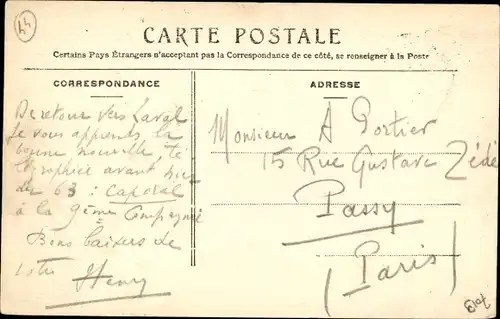 44
CARTE POSTALE
Certains Pays Étrangers n'acceptant pas la Correspondance de ce côté, se renseigner à la Poste
CORRESPONDANCE
De retour vers Laval
je vous apprends la
bonne nouvelle, té
légraphiée avant hier
du 63 : Caporal
à la 9ème Compagnie
Bons baisers de
votre Henry
ADRESSE
Monsieur A Portier
15 Rue Gustave Zédé
Passy
(Paris)